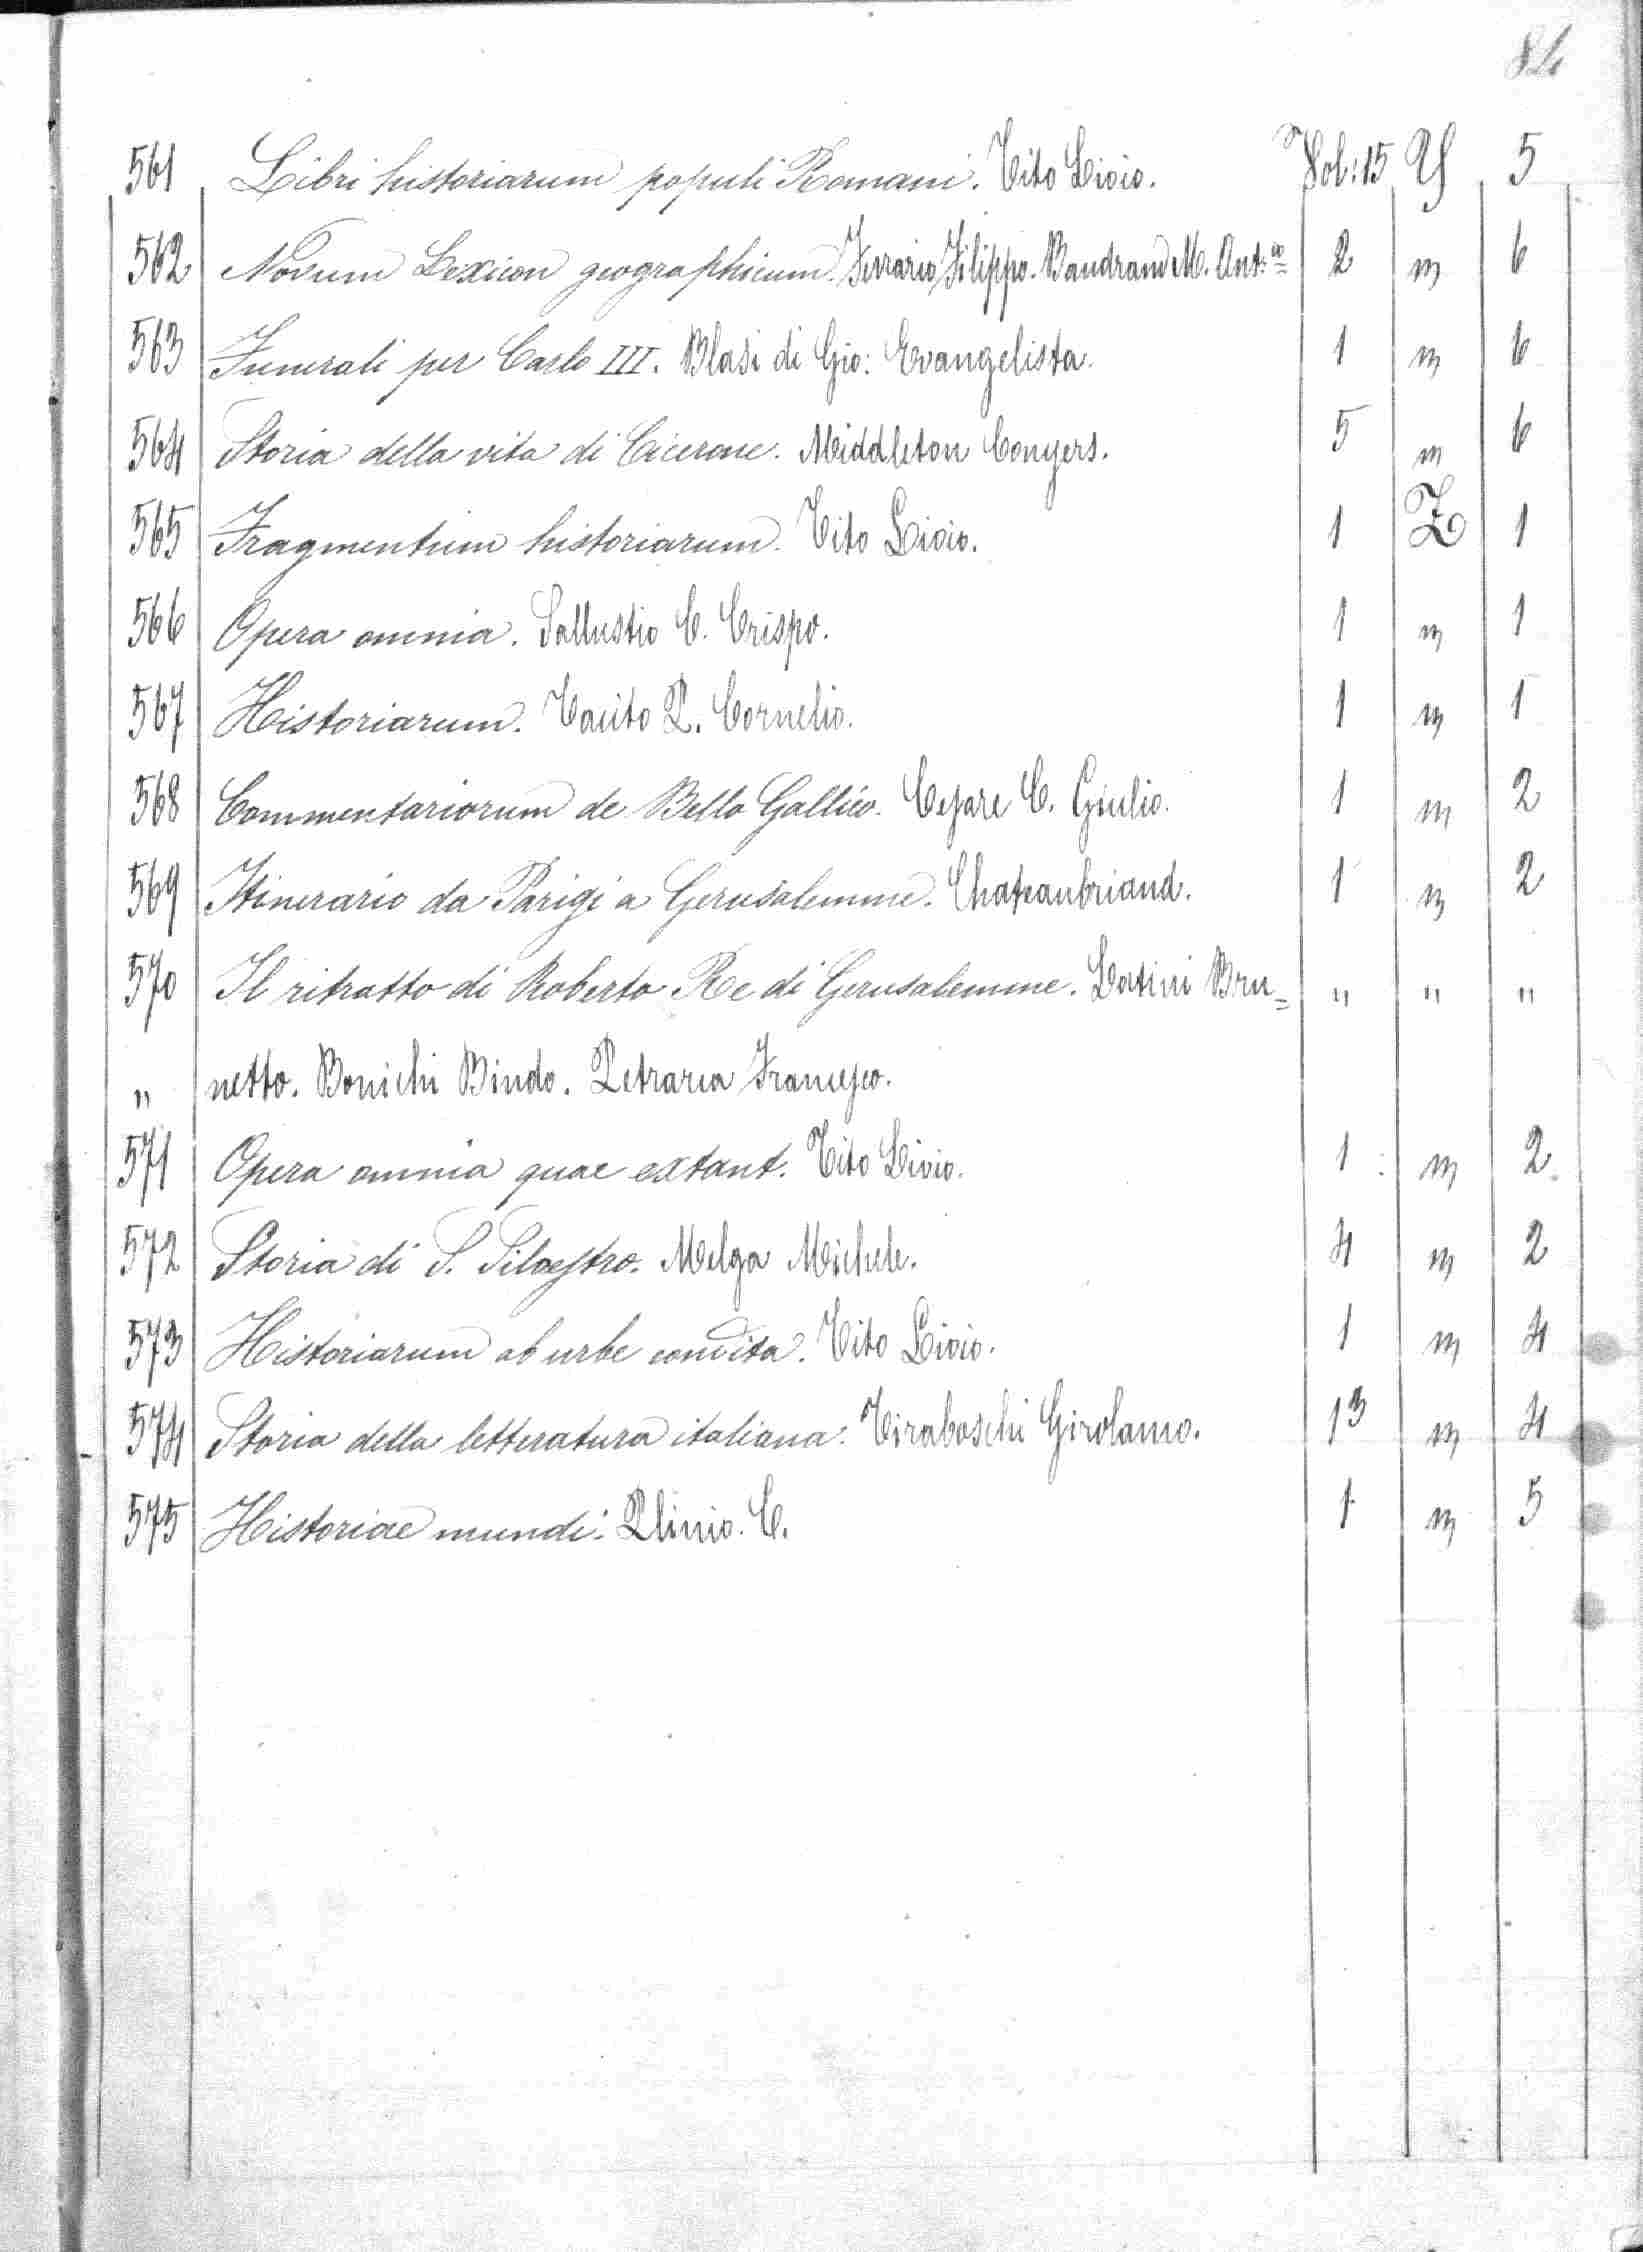 84
561 Libri historiarum populi Romani. Tito Livio. Vol: 15 Y 5
562 Novum Lexicon geographicum. Ferrario Filippo. Baudrand M. Ant:io 2 " 6
563 Funerali per Carlo III. Blasi di Gio: Evangelista. 1 " 6
564 Storia della vita di Cicerone. Middleton Conyers. 5 " 6
565 Fragmentum historiarum. Tito Livio. 1 Z 1
566 Opera omnia. Sallustio C. Crispo. 1 " 1
567 Historiarum. Tacito P. Cornelio. 1 " 1
568 Commentariorum de Bello Gallico. Cesare C. Giulio. 1 " 2
569 Itinerario da Parigi a Gerusalemme. Chateaubriand. 1 " 2
570 Il ritratto di Roberto Re di Gerusalemme. Latini Bru= " " "
" netto. Bonichi Bindo. Petrarca Francesco.
571 Opera omnia quae extant. Tito Livio. 1 " 2
572 Storia di S. Silvestro. Melga Michele. 4 " 2
573 Historiarum ab urbe condita. Tito Livio. 1 " 4
574 Storia della letteratura italiana. Tiraboschi Girolamo. 13 " 4
575 Historiae mundi. Plinio. C. 1 " 5